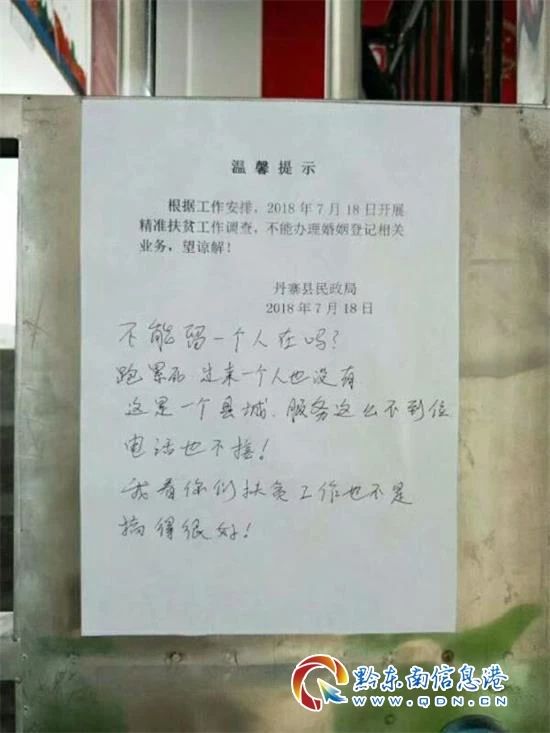 温馨提示
根据工作安排，2018年7月18日开展
精准扶贫工作调查，不能办理婚姻登记相关
业务，望谅解！
丹寨县民政局
2018年7月18日
不能留一个人在吗？
跑累死 过来一个人也没有
这是一个县城．服务这么不到位
电话也不接！
我看你们扶贫工作也不是
搞得很好！
黔东南信息港
WWW.QDN.CN